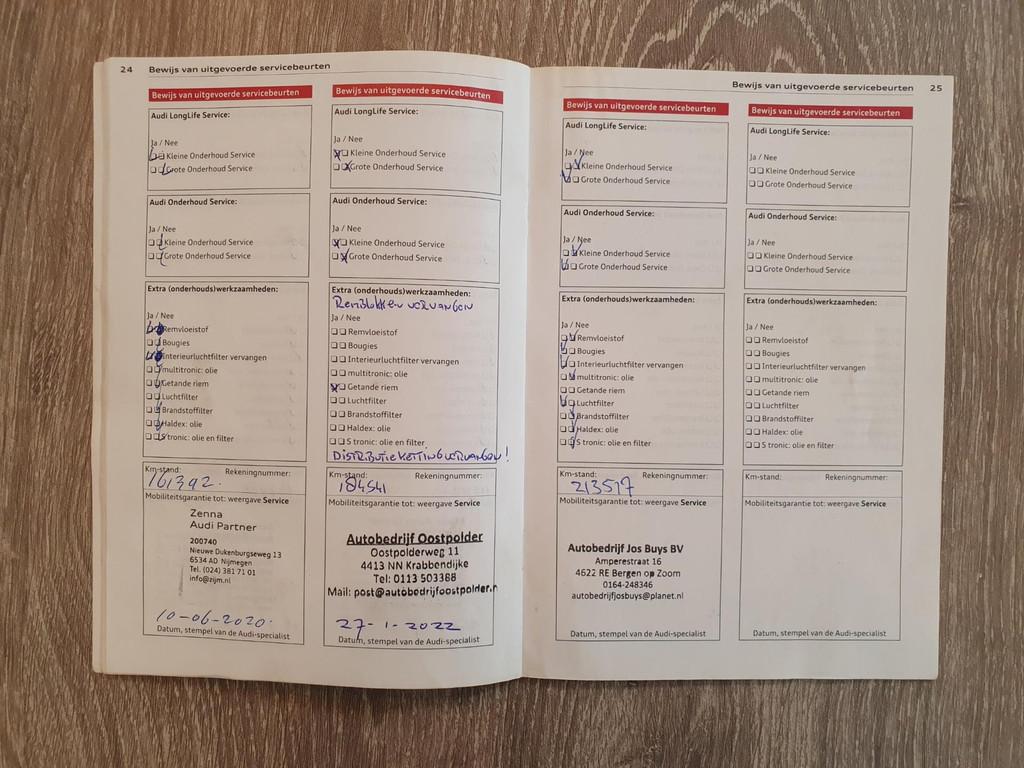 24 Bewijs van uitgevoerde servicebeurten
Bewijs van uitgevoerde servicebeurten
Audi LongLife Service:
Ja / Nee
Kleine Onderhoud Service
Grote Onderhoud Service
Audi Onderhoud Service:
Ja / Nee
Kleine Onderhoud Service
Grote Onderhoud Service
Extra (onderhouds)werkzaamheden:
Ja / Nee
Remvloeistof
Bougies
Interieurluchtfilter vervangen
multitronic: olie
Getande riem
Luchtfilter
Brandstoffilter
Haldex: olie
S tronic: olie en filter
Km-stand: Rekeningnummer:
161392.
Mobiliteitsgarantie tot: weergave Service
Zenna
Audi Partner
200740
Nieuwe Dukenburgseweg 13
6534 AD Nijmegen
Tel. (024) 381 71 01
info@zijm.nl
10-06-2020.
Datum, stempel van de Audi-specialist
Bewijs van uitgevoerde servicebeurten
Audi LongLife Service:
Ja / Nee
Kleine Onderhoud Service
Grote Onderhoud Service
Audi Onderhoud Service:
Ja / Nee
Kleine Onderhoud Service
Grote Onderhoud Service
Extra (onderhouds)werkzaamheden:
Remblokken vervangen
Ja / Nee
Remvloeistof
Bougies
Interieurluchtfilter vervangen
multitronic: olie
Getande riem
Luchtfilter
Brandstoffilter
Haldex: olie
S tronic: olie en filter
DISTRIBUTIEKETTING VERVANGEN!
Km-stand: Rekeningnummer:
184541
Mobiliteitsgarantie tot: weergave Service
Autobedrijf Oostpolder
Oostpolderweg 11
4413 NN Krabbendijke
Tel: 0113 503388
Mail: post@autobedrijfoostpolder.n
27-1-2022
Datum, stempel van de Audi-specialist
Bewijs van uitgevoerde servicebeurten 25
Bewijs van uitgevoerde servicebeurten
Audi LongLife Service:
Ja / Nee
Kleine Onderhoud Service
Grote Onderhoud Service
Audi Onderhoud Service:
Ja / Nee
Kleine Onderhoud Service
Grote Onderhoud Service
Extra (onderhouds)werkzaamheden:
Ja / Nee
Remvloeistof
Bougies
Interieurluchtfilter vervangen
multitronic: olie
Getande riem
Luchtfilter
Brandstoffilter
Haldex: olie
S tronic: olie en filter
Km-stand: Rekeningnummer:
213517
Mobiliteitsgarantie tot: weergave Service
Autobedrijf Jos Buys BV
Amperestraat 16
4622 RE Bergen op Zoom
0164-248346
autobedrijfjosbuys@planet.nl
Datum, stempel van de Audi-specialist
Bewijs van uitgevoerde servicebeurten
Audi LongLife Service:
Ja / Nee
Kleine Onderhoud Service
Grote Onderhoud Service
Audi Onderhoud Service:
Ja / Nee
Kleine Onderhoud Service
Grote Onderhoud Service
Extra (onderhouds)werkzaamheden:
Ja / Nee
Remvloeistof
Bougies
Interieurluchtfilter vervangen
multitronic: olie
Getande riem
Luchtfilter
Brandstoffilter
Haldex: olie
S tronic: olie en filter
Km-stand: Rekeningnummer:
Mobiliteitsgarantie tot: weergave Service
Datum, stempel van de Audi-specialist